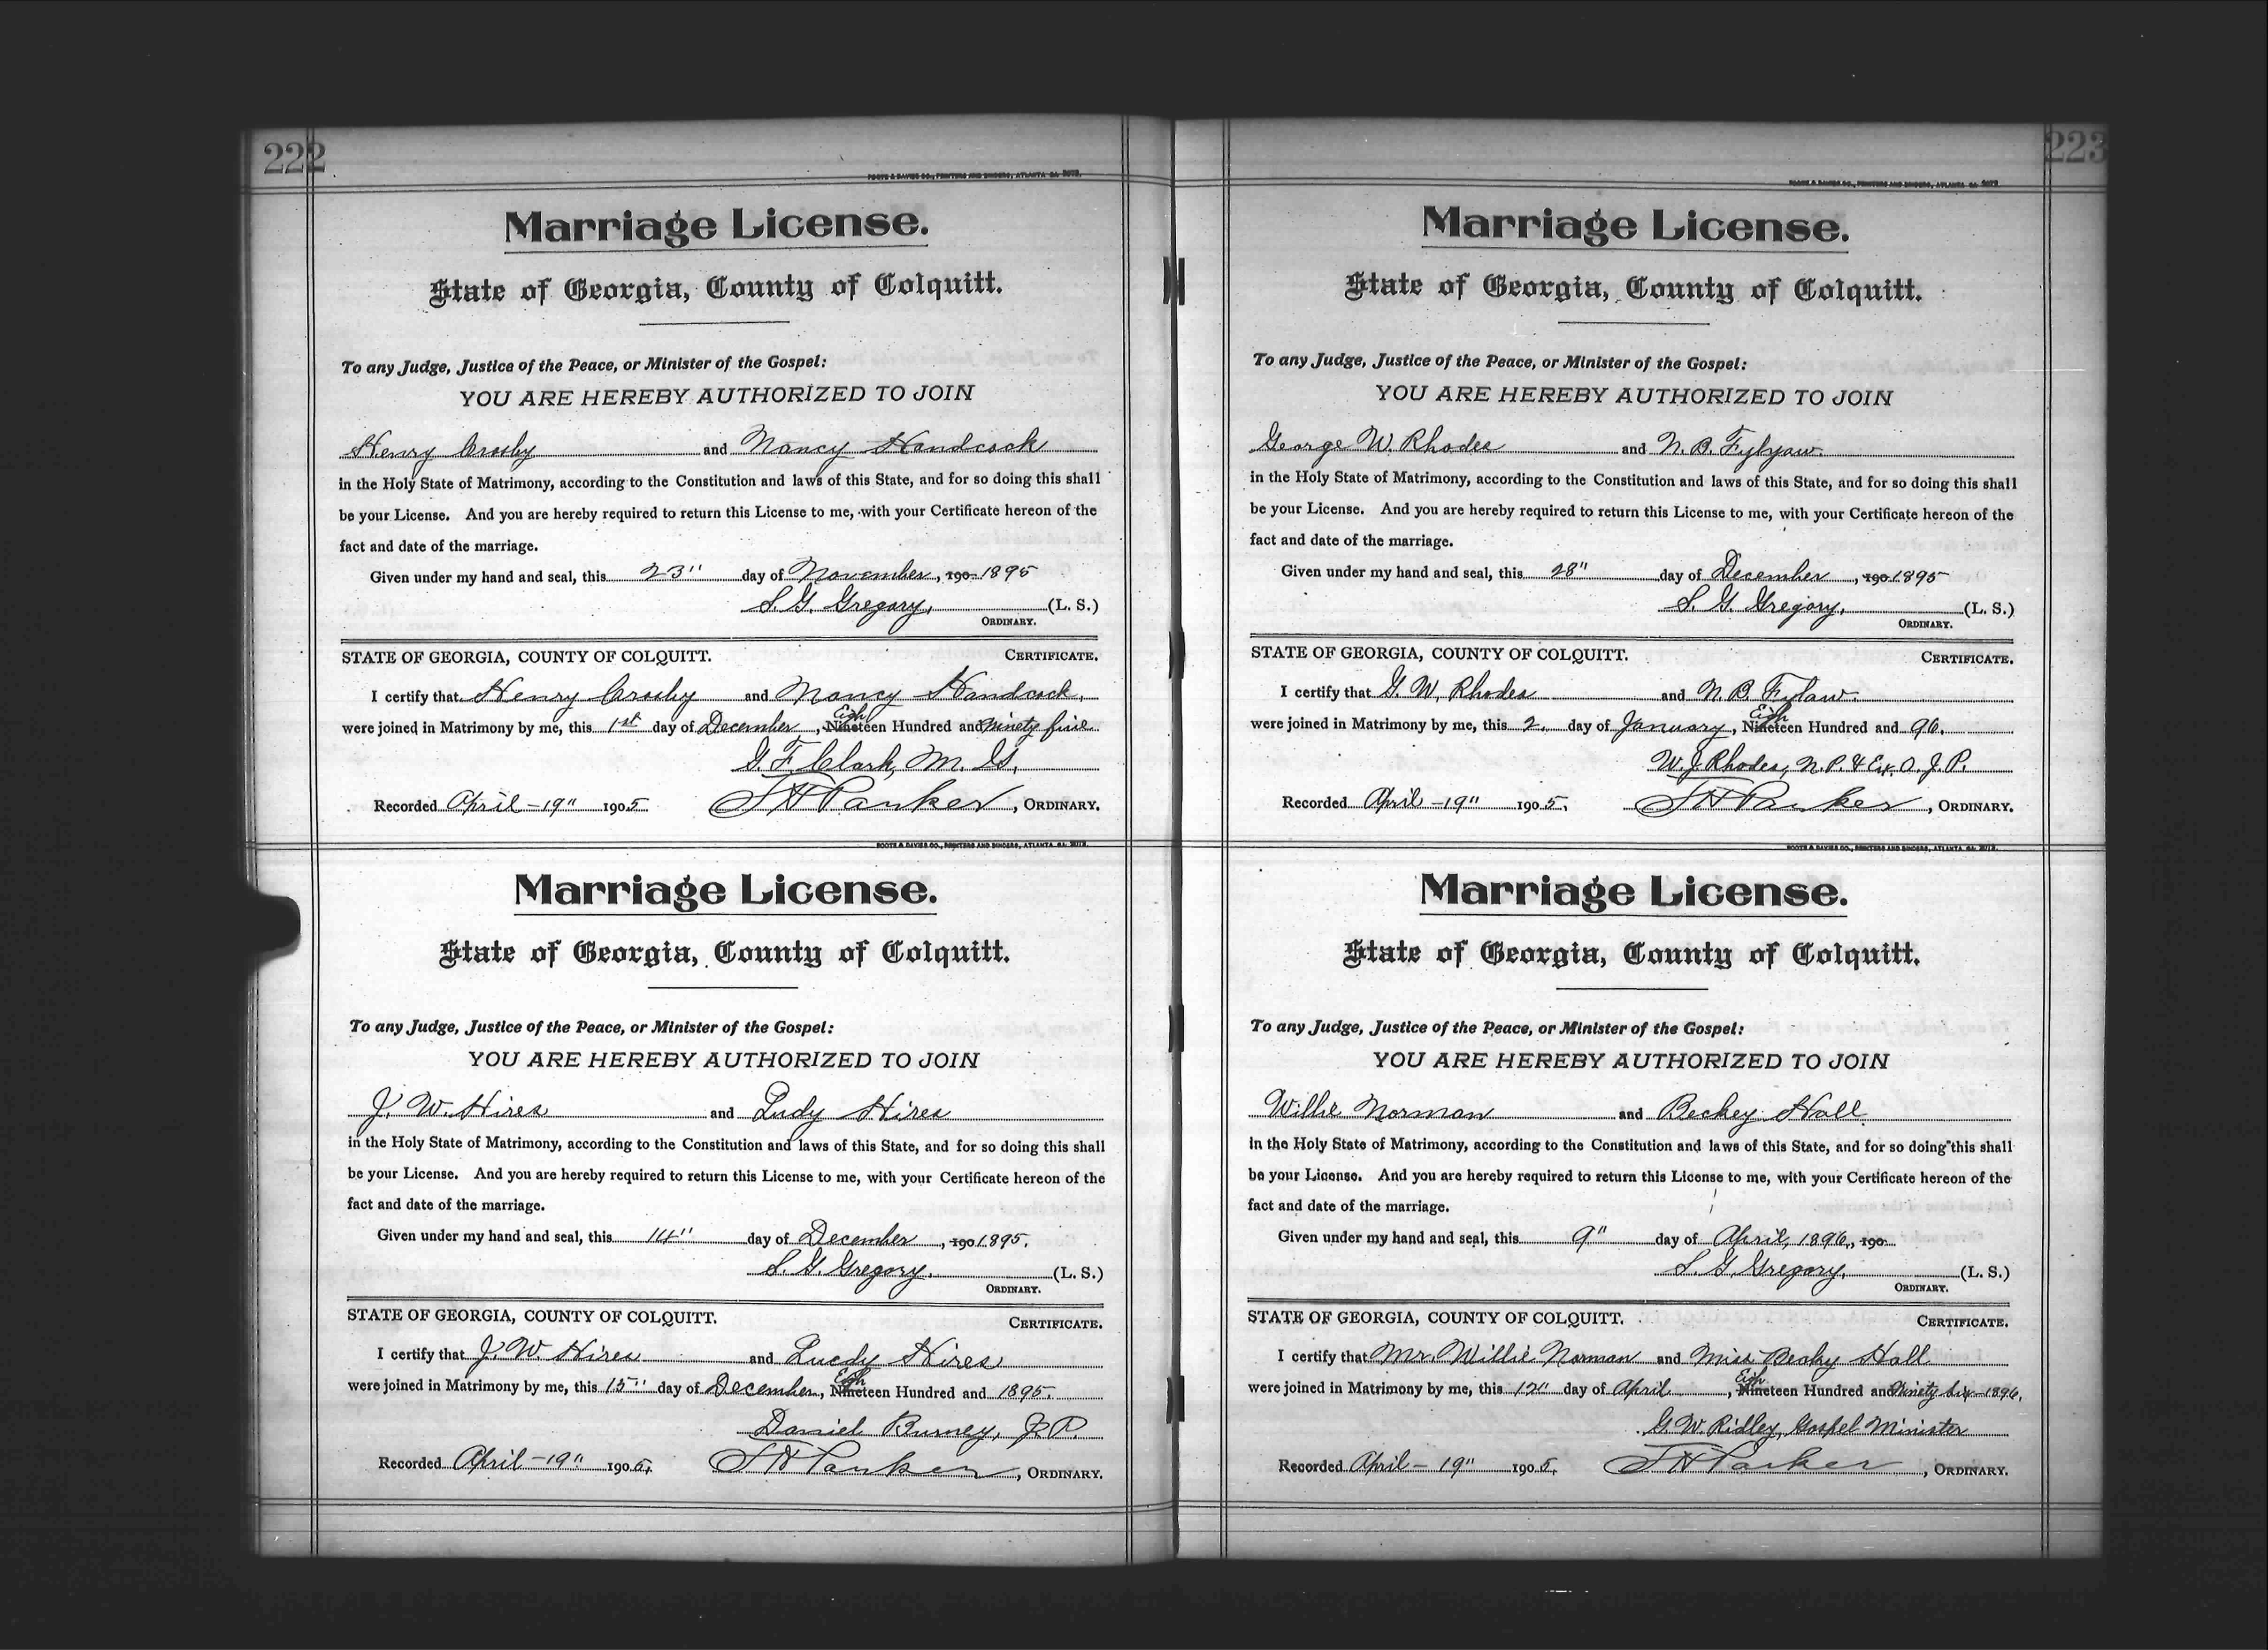 222
FOOTE & DAVIES CO., PRINTERS AND BINDERS, ATLANTA GA.
Marriage License.
State of Georgia, County of Colquitt.
To any Judge, Justice of the Peace, or Minister of the Gospel:
YOU ARE HEREBY AUTHORIZED TO JOIN
Henry Crosby and Nancy Handcock
in the Holy State of Matrimony, according to the Constitution and laws of this State, and for so doing this shall
be your License. And you are hereby required to return this License to me, with your Certificate hereon of the
fact and date of the marriage.
Given under my hand and seal, this 23" day of November, 190 1895
S. G. Gregory, (L. S.)
ORDINARY.
STATE OF GEORGIA, COUNTY OF COLQUITT. CERTIFICATE.
I certify that Henry Crosby and Nancy Handcock,
were joined in Matrimony by me, this 1st day of December, Eigh Nineteen Hundred and ninety five
G. F. Clark, M. G.
Recorded April - 19" 1905 J H Parker, ORDINARY.
FOOTE & DAVIES CO., PRINTERS AND BINDERS, ATLANTA GA.
Marriage License.
State of Georgia, County of Colquitt.
To any Judge, Justice of the Peace, or Minister of the Gospel:
YOU ARE HEREBY AUTHORIZED TO JOIN
J. W. Hires and Ludy Hires
in the Holy State of Matrimony, according to the Constitution and laws of this State, and for so doing this shall
be your License. And you are hereby required to return this License to me, with your Certificate hereon of the
fact and date of the marriage.
Given under my hand and seal, this 14" day of December, 190 1895.
S. G. Gregory. (L. S.)
ORDINARY.
STATE OF GEORGIA, COUNTY OF COLQUITT. CERTIFICATE.
I certify that J. W. Hires and Luedy Hires
were joined in Matrimony by me, this 15" day of December, Eigh Nineteen Hundred and 1895.
Daniel Burney, J. P.
Recorded April - 19" 1905. J H Parker, ORDINARY.
223
FOOTE & DAVIES CO., PRINTERS AND BINDERS, ATLANTA GA.
Marriage License.
State of Georgia, County of Colquitt.
To any Judge, Justice of the Peace, or Minister of the Gospel:
YOU ARE HEREBY AUTHORIZED TO JOIN
George W. Rhodes and N. B. Fylyaw.
in the Holy State of Matrimony, according to the Constitution and laws of this State, and for so doing this shall
be your License. And you are hereby required to return this License to me, with your Certificate hereon of the
fact and date of the marriage.
Given under my hand and seal, this 28" day of December, 190 1895
S. G. Gregory, (L. S.)
ORDINARY.
STATE OF GEORGIA, COUNTY OF COLQUITT. CERTIFICATE.
I certify that G. W. Rhodes and N. B. Fylaw.
were joined in Matrimony by me, this 2. day of January, Eigh Nineteen Hundred and 96.
W. J. Rhodes, N. P. & Ex. O. J. P.
Recorded April - 19" 1905. J H Parker, ORDINARY.
FOOTE & DAVIES CO., PRINTERS AND BINDERS, ATLANTA GA.
Marriage License.
State of Georgia, County of Colquitt.
To any Judge, Justice of the Peace, or Minister of the Gospel:
YOU ARE HEREBY AUTHORIZED TO JOIN
Willie Norman and Beckey Hall
in the Holy State of Matrimony, according to the Constitution and laws of this State, and for so doing this shall
be your License. And you are hereby required to return this License to me, with your Certificate hereon of the
fact and date of the marriage.
Given under my hand and seal, this 9" day of April, 1896, 190
S. G. Gregory, (L. S.)
ORDINARY.
STATE OF GEORGIA, COUNTY OF COLQUITT. CERTIFICATE.
I certify that Mr. Willie Norman and Miss Becky Hall
were joined in Matrimony by me, this 12" day of April, Eigh Nineteen Hundred and Ninety six - 1896.
G. W. Ridley, Gospel Minister
Recorded April - 19" 1905. J H Parker, ORDINARY.